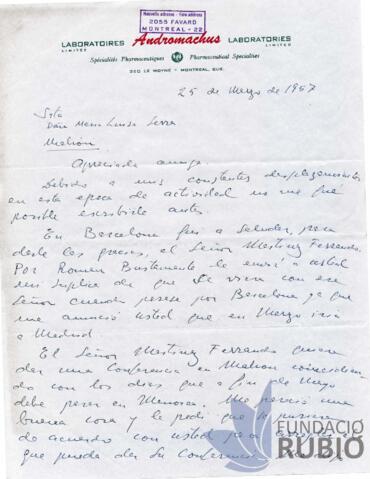 Nouvelle adresse - New address
2055 FAVARD
MONTREAL - 22
LABORATOIRES Andromachus LABORATORIES
LIMITÉE LIMITED
Spécialités Pharmaceutiques Pharmaceutical Specialties
320 LE MOYNE - MONTREAL, QUE.
25 de Marzo de 1957
Srta
Dña Maria Luisa Serra
Mahón
Apreciada amiga:
Debido a mis constantes desplazamientos
en esta época de actividad no me fué
posible escribirle antes.
En Barcelona fui a saludar, para
darle las gracias, el Señor Martinez Ferrando.
Por Román Bustamante le envié a usted
mi súplica de que se viera con ese
Señor cuando pasase por Barcelona ya que
me anunció usted que en Marzo iría
a Madrid.
El Señor Martinez Ferrando quiere
dar una Conferencia en Mahon coincidien
do con los dias que a fin de Mayo
debe pasar en Menorca. Me pareció una
buena cosa y le pedí que se pusiera
de acuerdo con usted para
que pueda dar su Conferencia
FUNDACIÓ
RUBIÓ